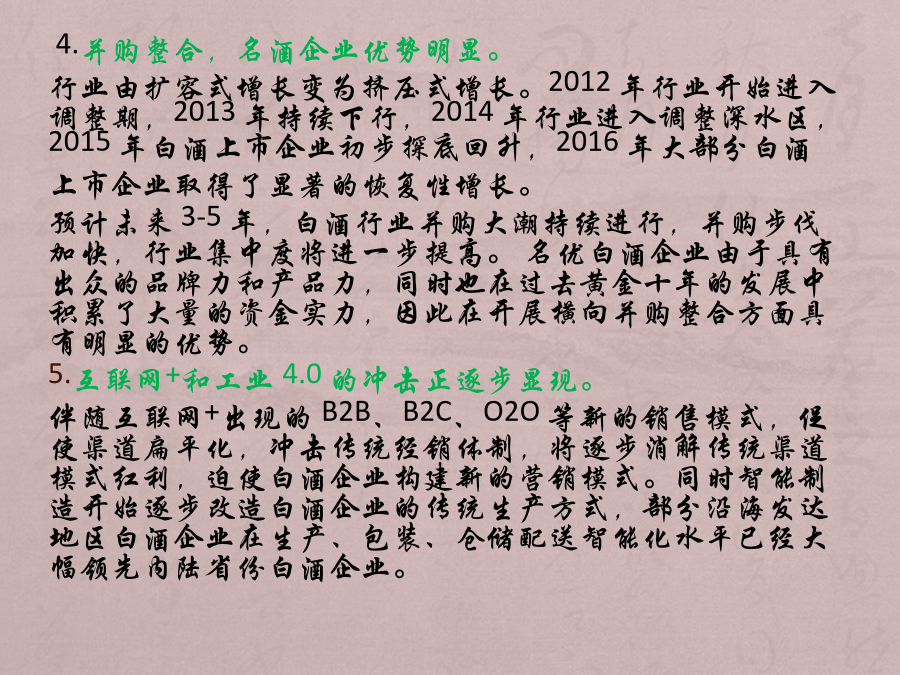 4.并购整合，名酒企业优势明显。
行业由扩容式增长变为挤压式增长。2012 年行业开始进入
调整期，2013 年持续下行，2014 年行业进入调整深水区，
2015 年白酒上市企业初步探底回升，2016 年大部分白酒
上市企业取得了显著的恢复性增长。
预计未来 3-5 年，白酒行业并购大潮持续进行，并购步伐
加快，行业集中度将进一步提高。 名优白酒企业由于具有
出众的品牌力和产品力，同时也在过去黄金十年的发展中
积累了大量的资金实力，因此在开展横向并购整合方面具
有明显的优势。
5.互联网+和工业 4.0 的冲击正逐步显现。
伴随互联网+出现的 B2B、B2C、O2O 等新的销售模式，促
使渠道扁平化，冲击传统经销体制，将逐步消解传统渠道
模式红利，迫使白酒企业构建新的营销模式。同时智能制
造开始逐步改造白酒企业的传统生产方式，部分沿海发达
地区白酒企业在生产、包装、仓储配送智能化水平已经大
幅领先内陆省份白酒企业。